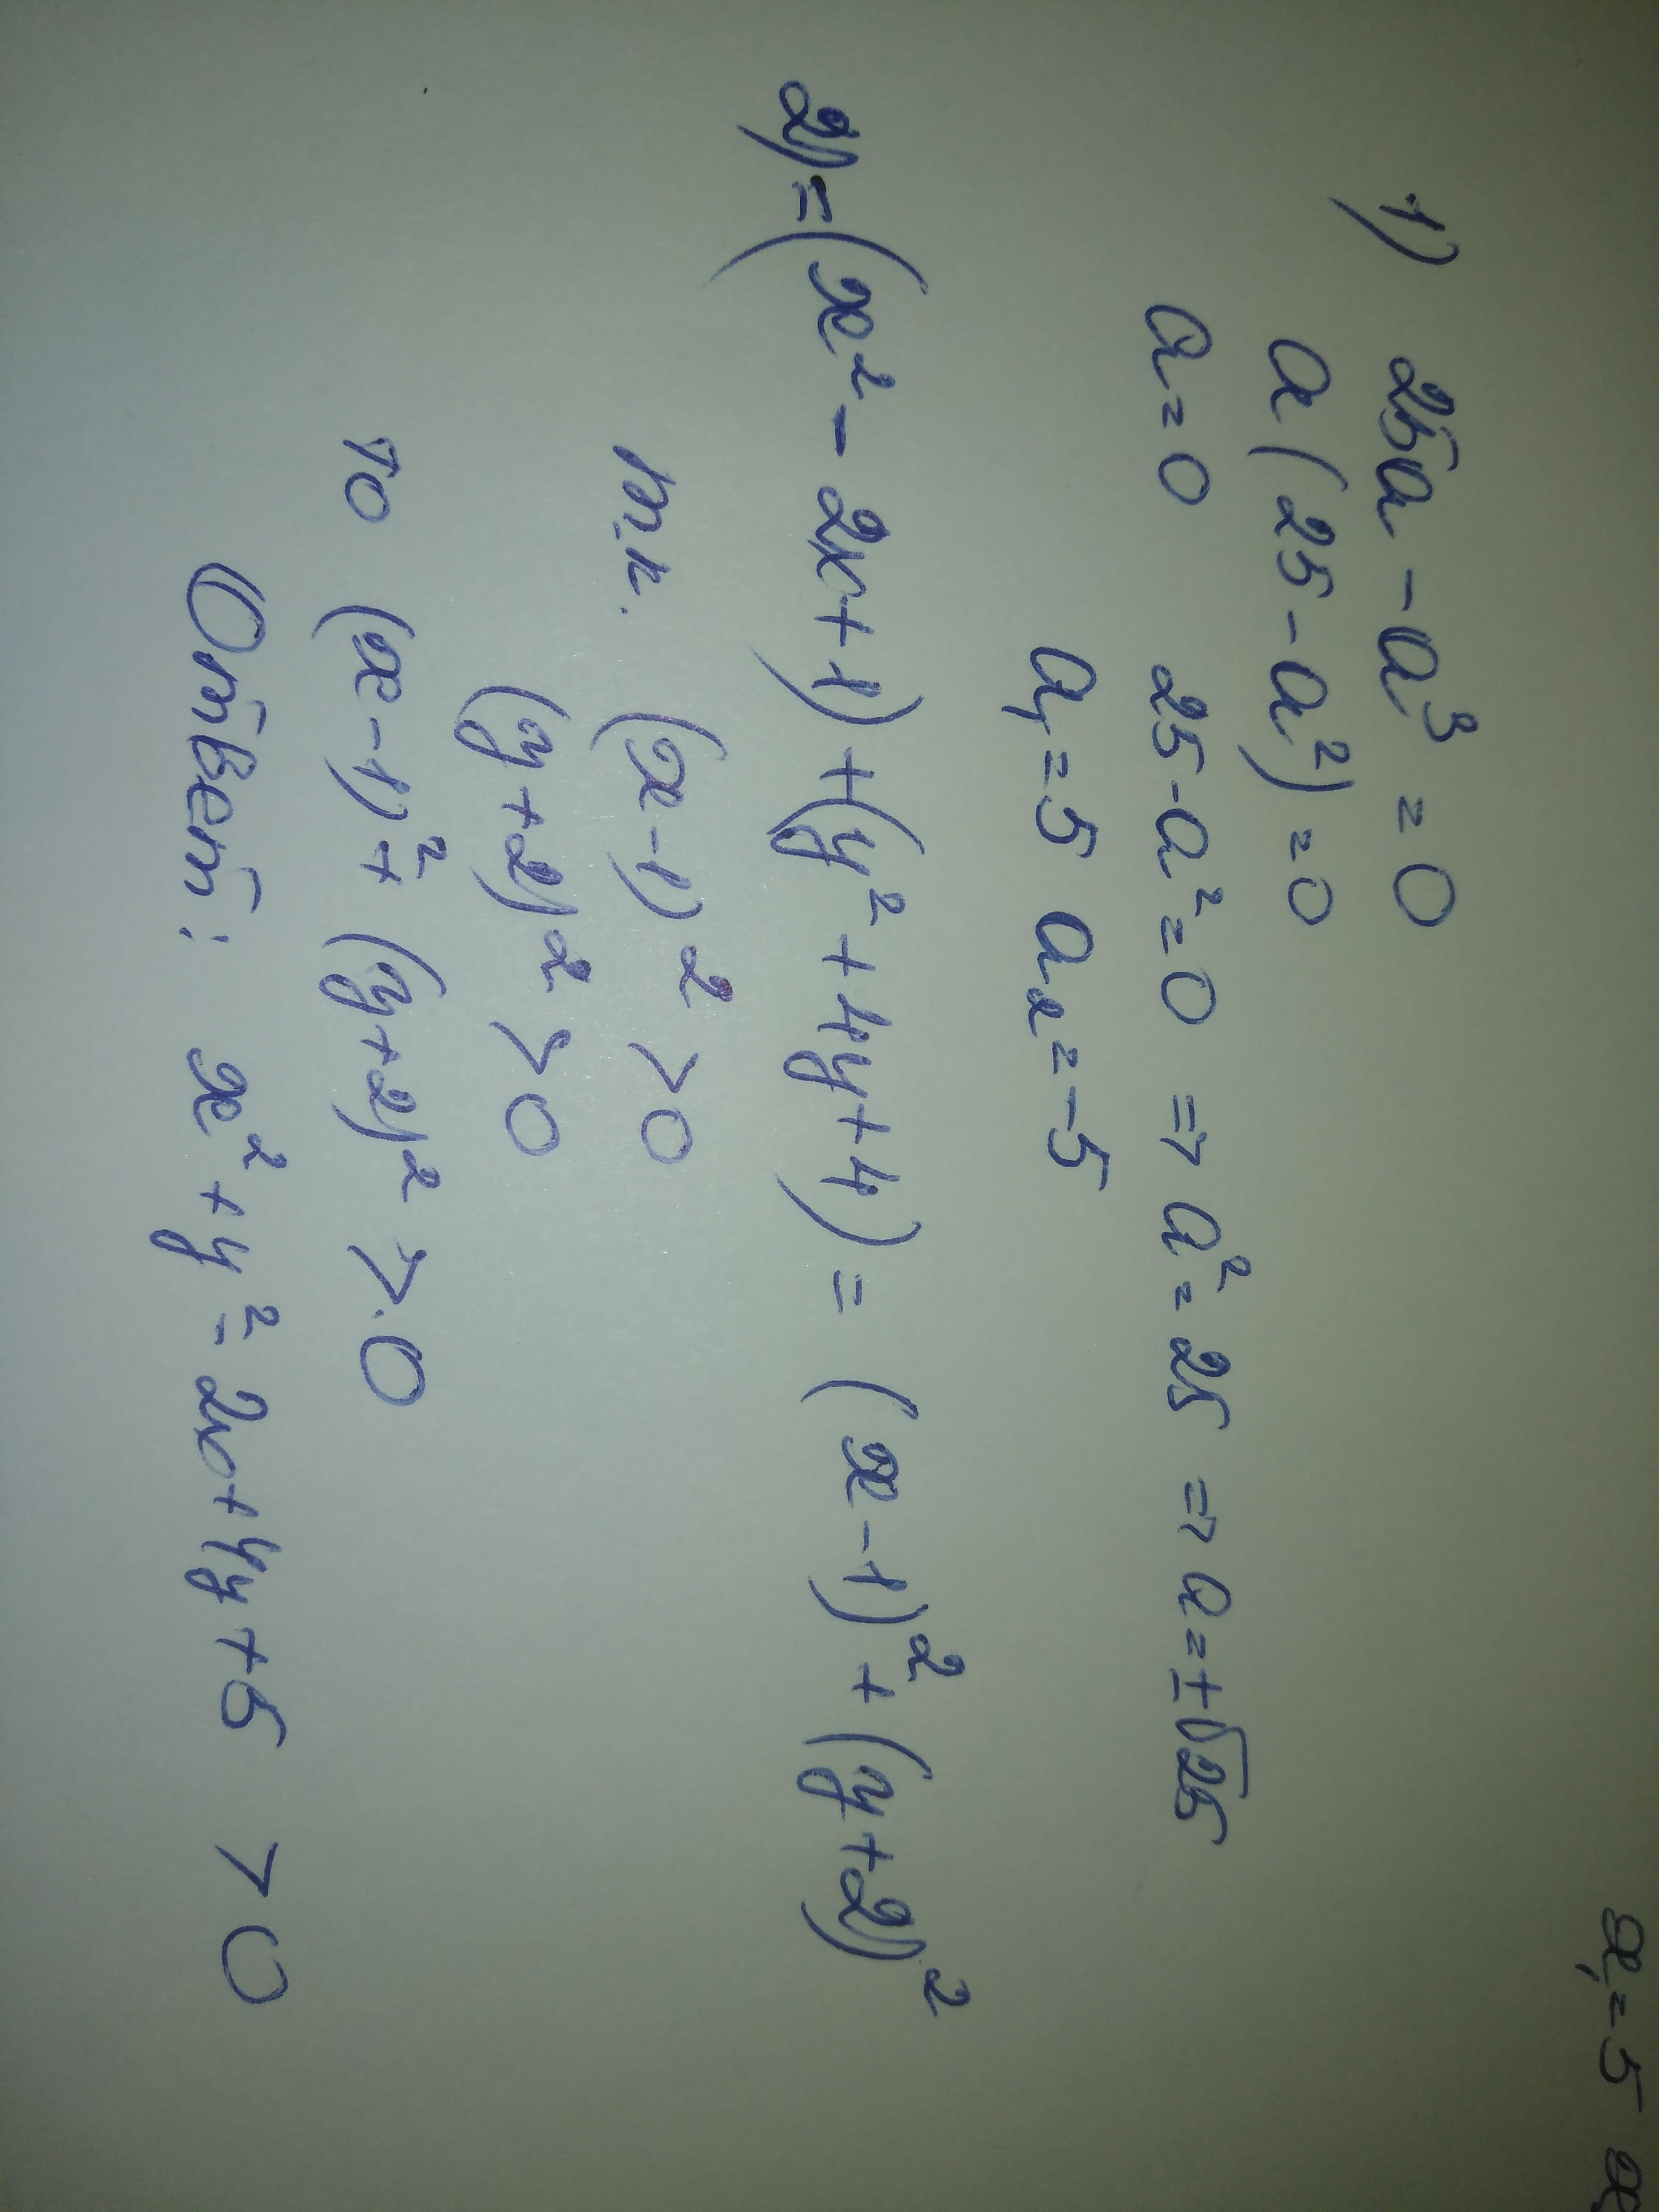 x₁ = 5 x
1) 25a - a³ = 0
a (25 - a²) = 0
a = 0 25 - a² = 0 => a² = 25 => a = ±√25
a₁ = 5 a₂ = -5
2) = (x² - 2x + 1) + (y² + 4y + 4) = (x - 1)² + (y + 2)²
т.к. (x - 1)² > 0
(y + 2)² > 0
то (x - 1)² + (y + 2)² > 0
Ответ: x² + y² - 2x + 4y + 5 > 0